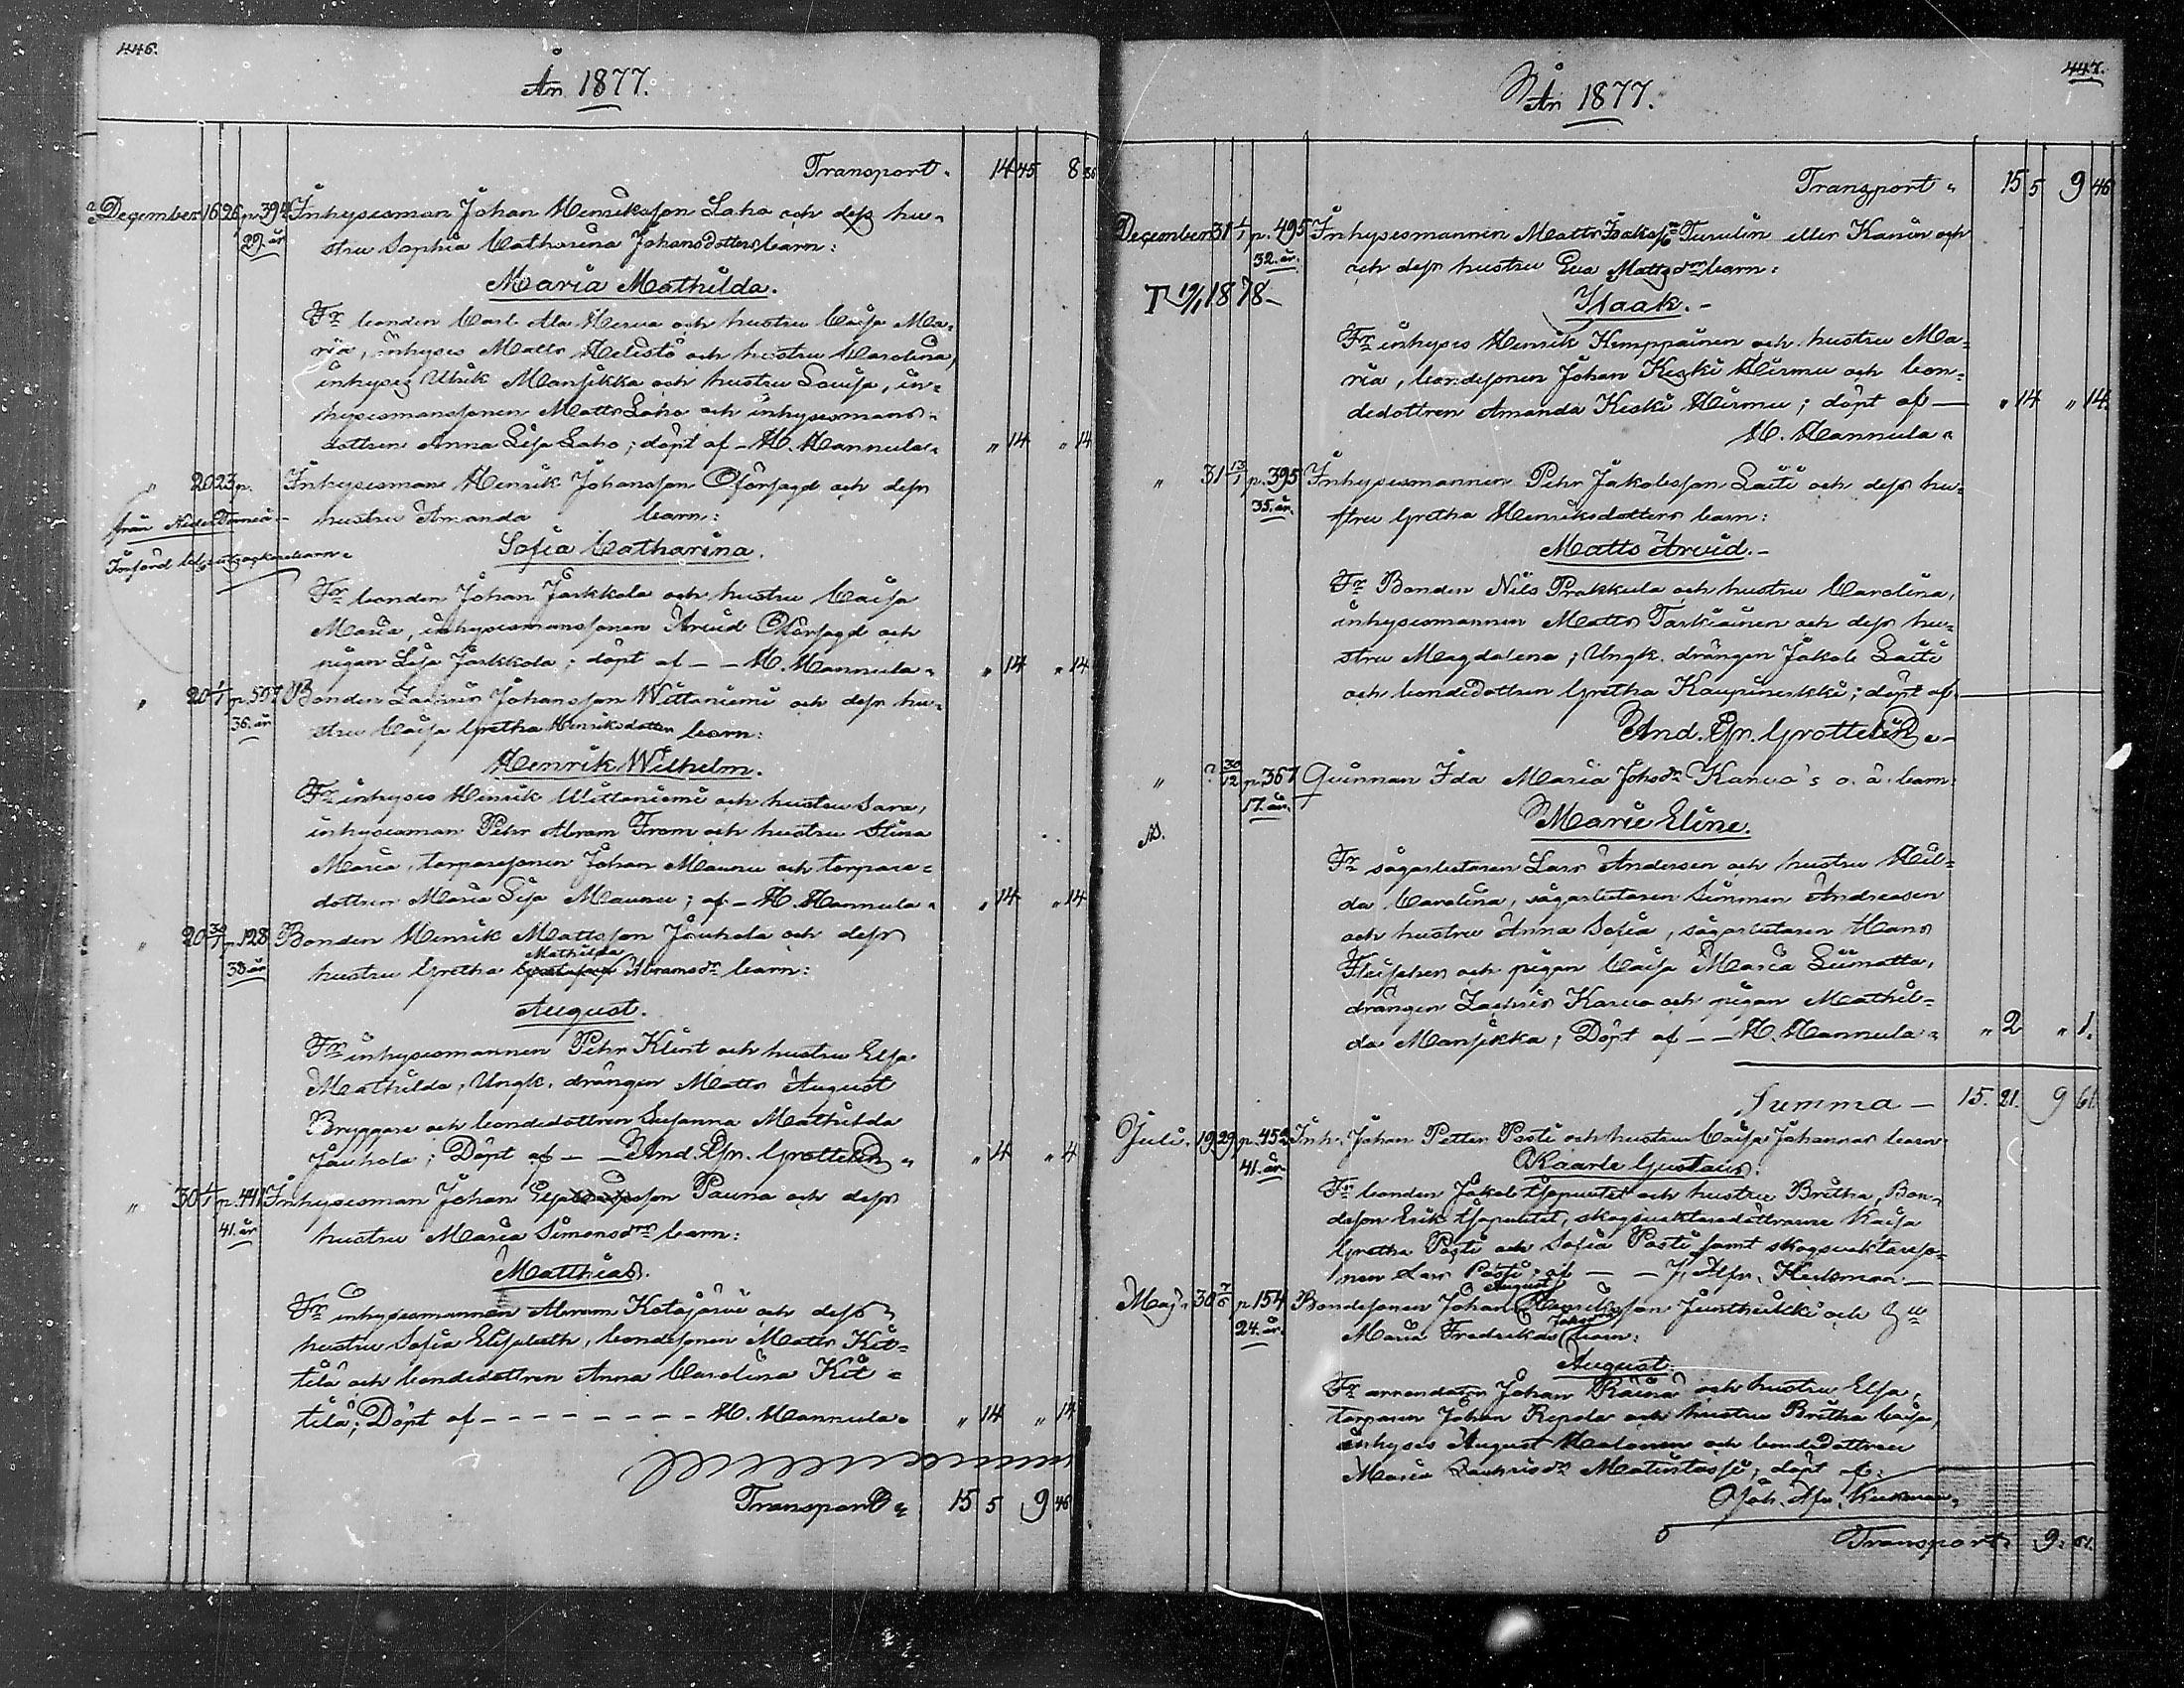 446.
År 1877.
Transport 14 45 8 36
December 16 26 p.394 Inhysesman Johan Henriksson Laho och dess hu-
29. år stru Sophia Catharina Johansdotters barn:
Maria Mathilda.
Fr bonden Carl Ala Herva och hustru Caisa Ma-
ria, inhyses Matts Helistö och hustru Carolina,
inhyses Ulrik Mansikka och hustru Lovisa, in-
hysesmanssonen Matts Laho och inhysesmans-
dottren Anna Lisa Laho; döpt af - H. Hannula " 14 " 14
" 20 23 p. Inhysesman Henrik Johansson Oförsagd och dess
från Neder Torneå hustru Amanda barn:
Sofia Catharina.
Fr bonden Johan Jarkkola och hustru Caisa
Maria, inhysesmanssonen Arvid Oförsagd och
pigan Lisa Jarkkola; döpt af - - H. Hannula " 14 " 14
" 20 1/1 p.557 Bonden Zachris Johansson Wittaniemi och dess hu-
36. år stru Caisa Gretha Henriksdotters barn:
Henrik Wilhelm.
Fr inhyses Henrik Wittaniemi och hustru Sara,
inhysesman Pehr Abram From och hustru Stina
Maria, torparesonen Johan Maunu och torpare-
dottren Maria Lisa Maunu; af - H. Hannula " 14 " 14
" 20 30/1 p.128 Bonden Henrik Mattsson Jauhola och dess
Mathilda
38 år hustru Gretha Abramsdr barn:
August.
Fr inhysesmannen Pehr Klint och hustru Elsa
Mathilda, Ungk. drängen Matts August
Bryggare och bondedottren Susanna Mathilda
Jauhola; Döpt af - - And. Gr. Grottelin " 4 " 4
" 30 1/1 p.441 Inhysesman Johan Pauna och dess
41. år hustru Maria Simonsdrs barn:
Matthias.
Fr inhysesmannen Abram Kotajärvi och dess
hustru Sofia Elisabeth, bondesonen Matts Kit-
tilä och bondedottren Anna Carolina Kit-
tilä; Döpt af - - - - - - - - H. Hannula " 14 " 14
Transport 15 5 9 46
447.
År 1877.
Transport 15 5 9 46
December 31 1/1 p.495 Inhysesmannen Matts Isaksson Turulin eller Kanin och
32. år. och dess hustru Eva Mattsdrs barn:
1878
Isaak.
Fr inhyses Henrik Kimppainen och hustru Ma-
ria, bondesonen Johan Keski Hirmu och bon-
dedottren Amanda Keski Hirmu; döpt af - " 14 " 14.
H. Hannula
" 31 13/1 p.395 Inhysesmannen Pehr Jakobsson Laiti och dess hu-
35. år. stru Gretha Henriksdotters barn:
Matts Arvid.
Fr Bonden Nils Prakkula och hustru Carolina,
inhysesmannen Matts Tarkiainen och dess hu-
stru Magdalena; Ungk. drängen Jakob Laiti
och bondedottren Gretha Kaupinerkki; döpt af
And. Gr. Grottelin
" ? 30/12 p.367 Qvinnan Ida Maria Johsdr Karvo's o. ä. barn:
17. år.
Marie Eline.
Fr sågarbetaren Lars Andersen och hustru Hil-
da Carolina, sågarbetaren Simmen Andreasen
och hustru Anna Sofia, sågarbetaren Hans
Fleischer och pigan Caisa Maria Liimatta,
drängen Zachris Karvo och pigan Mathil-
da Mansikka; Döpt af - - H. Hannula " 2 " 1.
Summa - 15. 21. 9 61.
Juli 19 29 p.452 Inh. Johan Petter Posti och hustru Caisa Johannas barn
41. år
Kaarle Gustaus.
Fr bonden Jakob Isopuutet och hustru Britha, Bon-
deson Erik Isopuutet, skogsvaktaredöttrarne Kaisa
Gretha Posti och Sofia Posti samt skogsvaktareso-
nen Lars Posti; af - - J. Alfr. Heikman
August
Maj 30 7/6 p.154 Bondesonen Johan Henriksson
24. år. Maria Fredrikas barn:
August.
Fr arrendatorn Johan Räinä och hustru Elsa,
torparen Johan Repola och hustru Britha Caisa,
inhyses August Halonen och bondedottren
Maria Zachrisdr Matintassi; döpt af:
Joh. Alfr. Heikman
Transport 9. 61.